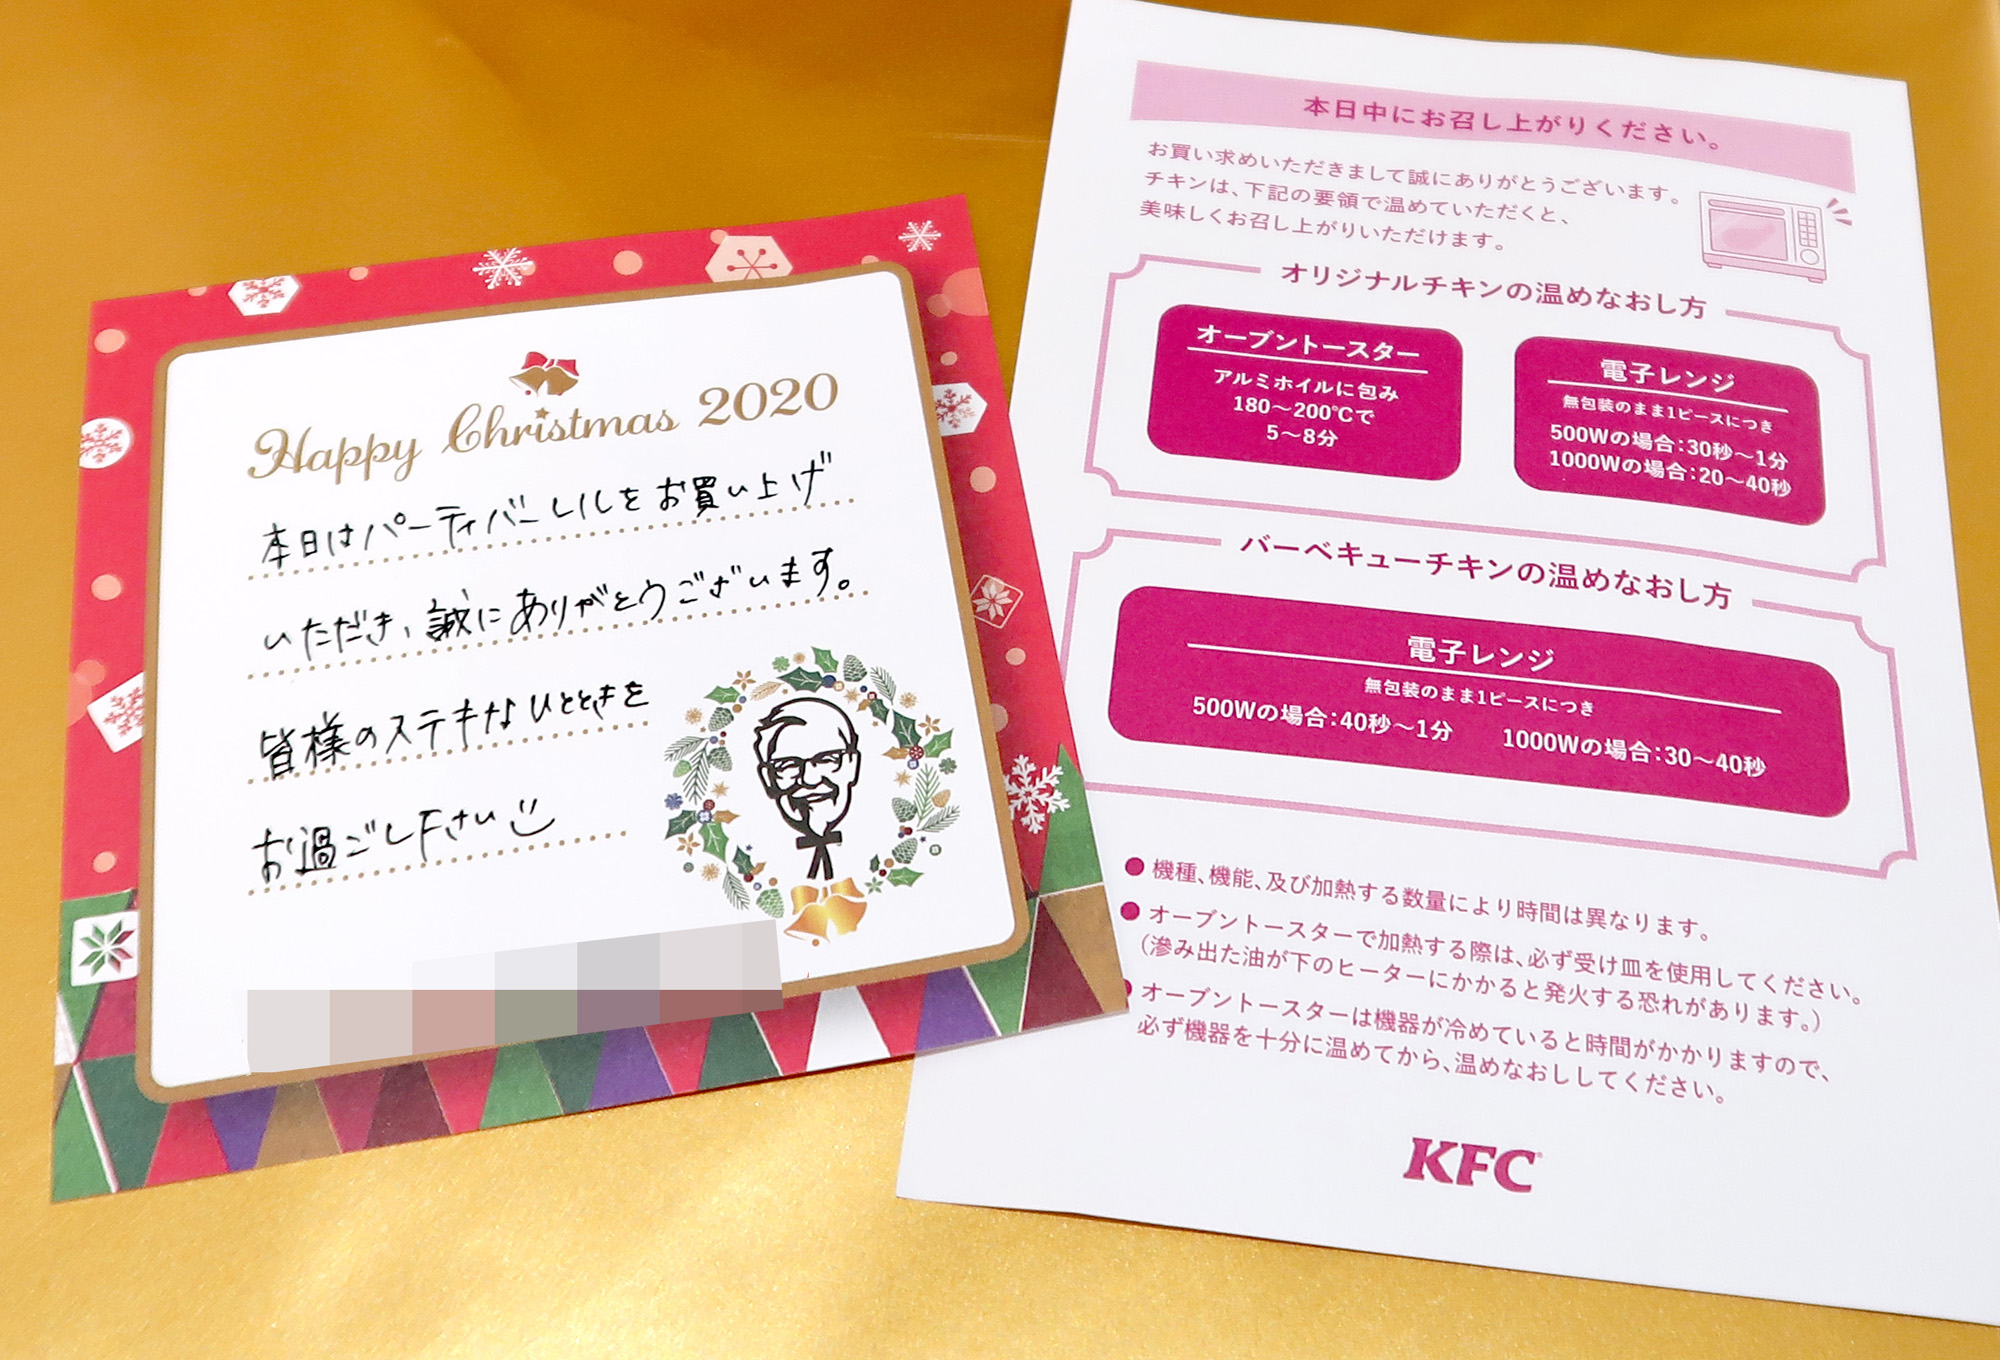 Happy Christmas 2020
本日はパーティバーレルをお買い上げ
いただき、誠にありがとうございます。
皆様のステキなひとときを
お過ごし下さい
本日中にお召し上がりください。
お買い求めいただきまして誠にありがとうございます。
チキンは、下記の要領で温めていただくと、
美味しくお召し上がりいただけます。
オリジナルチキンの温めなおし方
オーブントースター
アルミホイルに包み
180〜200℃で
5〜8分
電子レンジ
無包装のまま1ピースにつき
500Wの場合:30秒〜1分
1000Wの場合:20〜40秒
バーベキューチキンの温めなおし方
電子レンジ
無包装のまま1ピースにつき
500Wの場合:40秒〜1分 1000Wの場合:30〜40秒
●機種、機能、及び加熱する数量により時間は異なります。
●オーブントースターで加熱する際は、必ず受け皿を使用してください。
(滲み出た油が下のヒーターにかかると発火する恐れがあります。)
●オーブントースターは機器が冷めていると時間がかかりますので、
必ず機器を十分に温めてから、温めなおししてください。
KFC